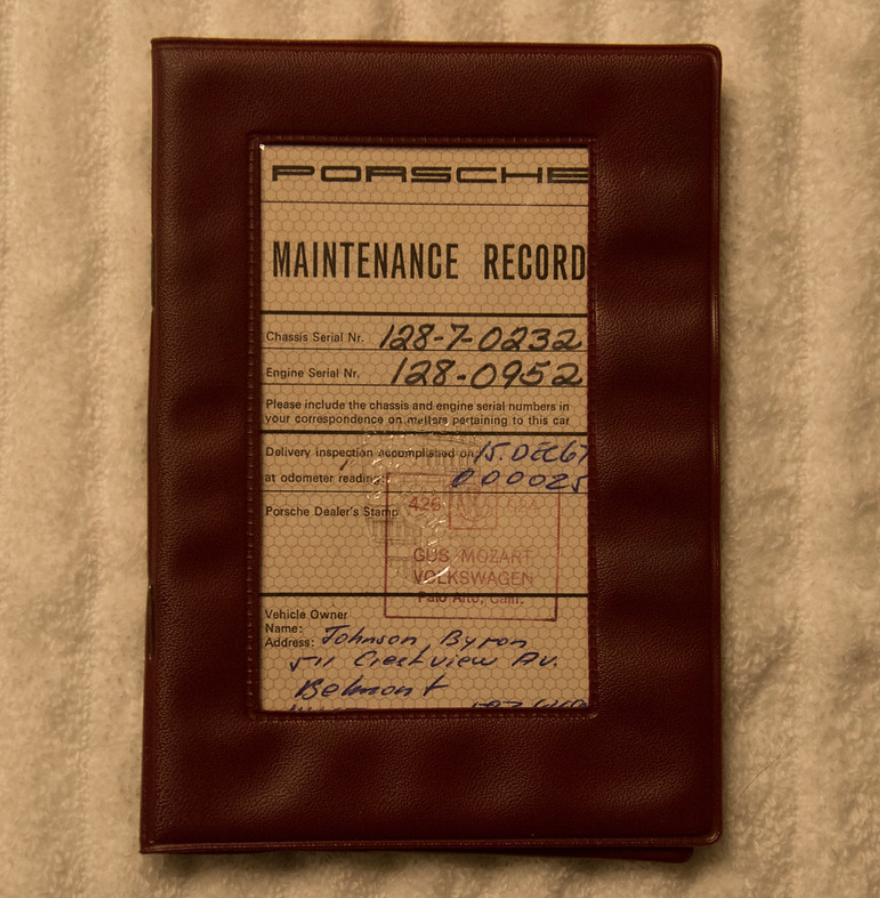 PORSCHE
MAINTENANCE RECORD
Chassis Serial Nr. 128-7-0232
Engine Serial Nr. 128-0952
Please include the chassis and engine serial numbers in
your correspondence on matters pertaining to this car
Delivery inspection accomplished on 15. DEC 67
at odometer reading: 000025
Porsche Dealer's Stamp
426 USA
GUS MOZART
VOLKSWAGEN
Palo Alto, Calif.
Vehicle Owner
Name:
Address: Johnson, Byron
511 Crestview Av.
Belmont